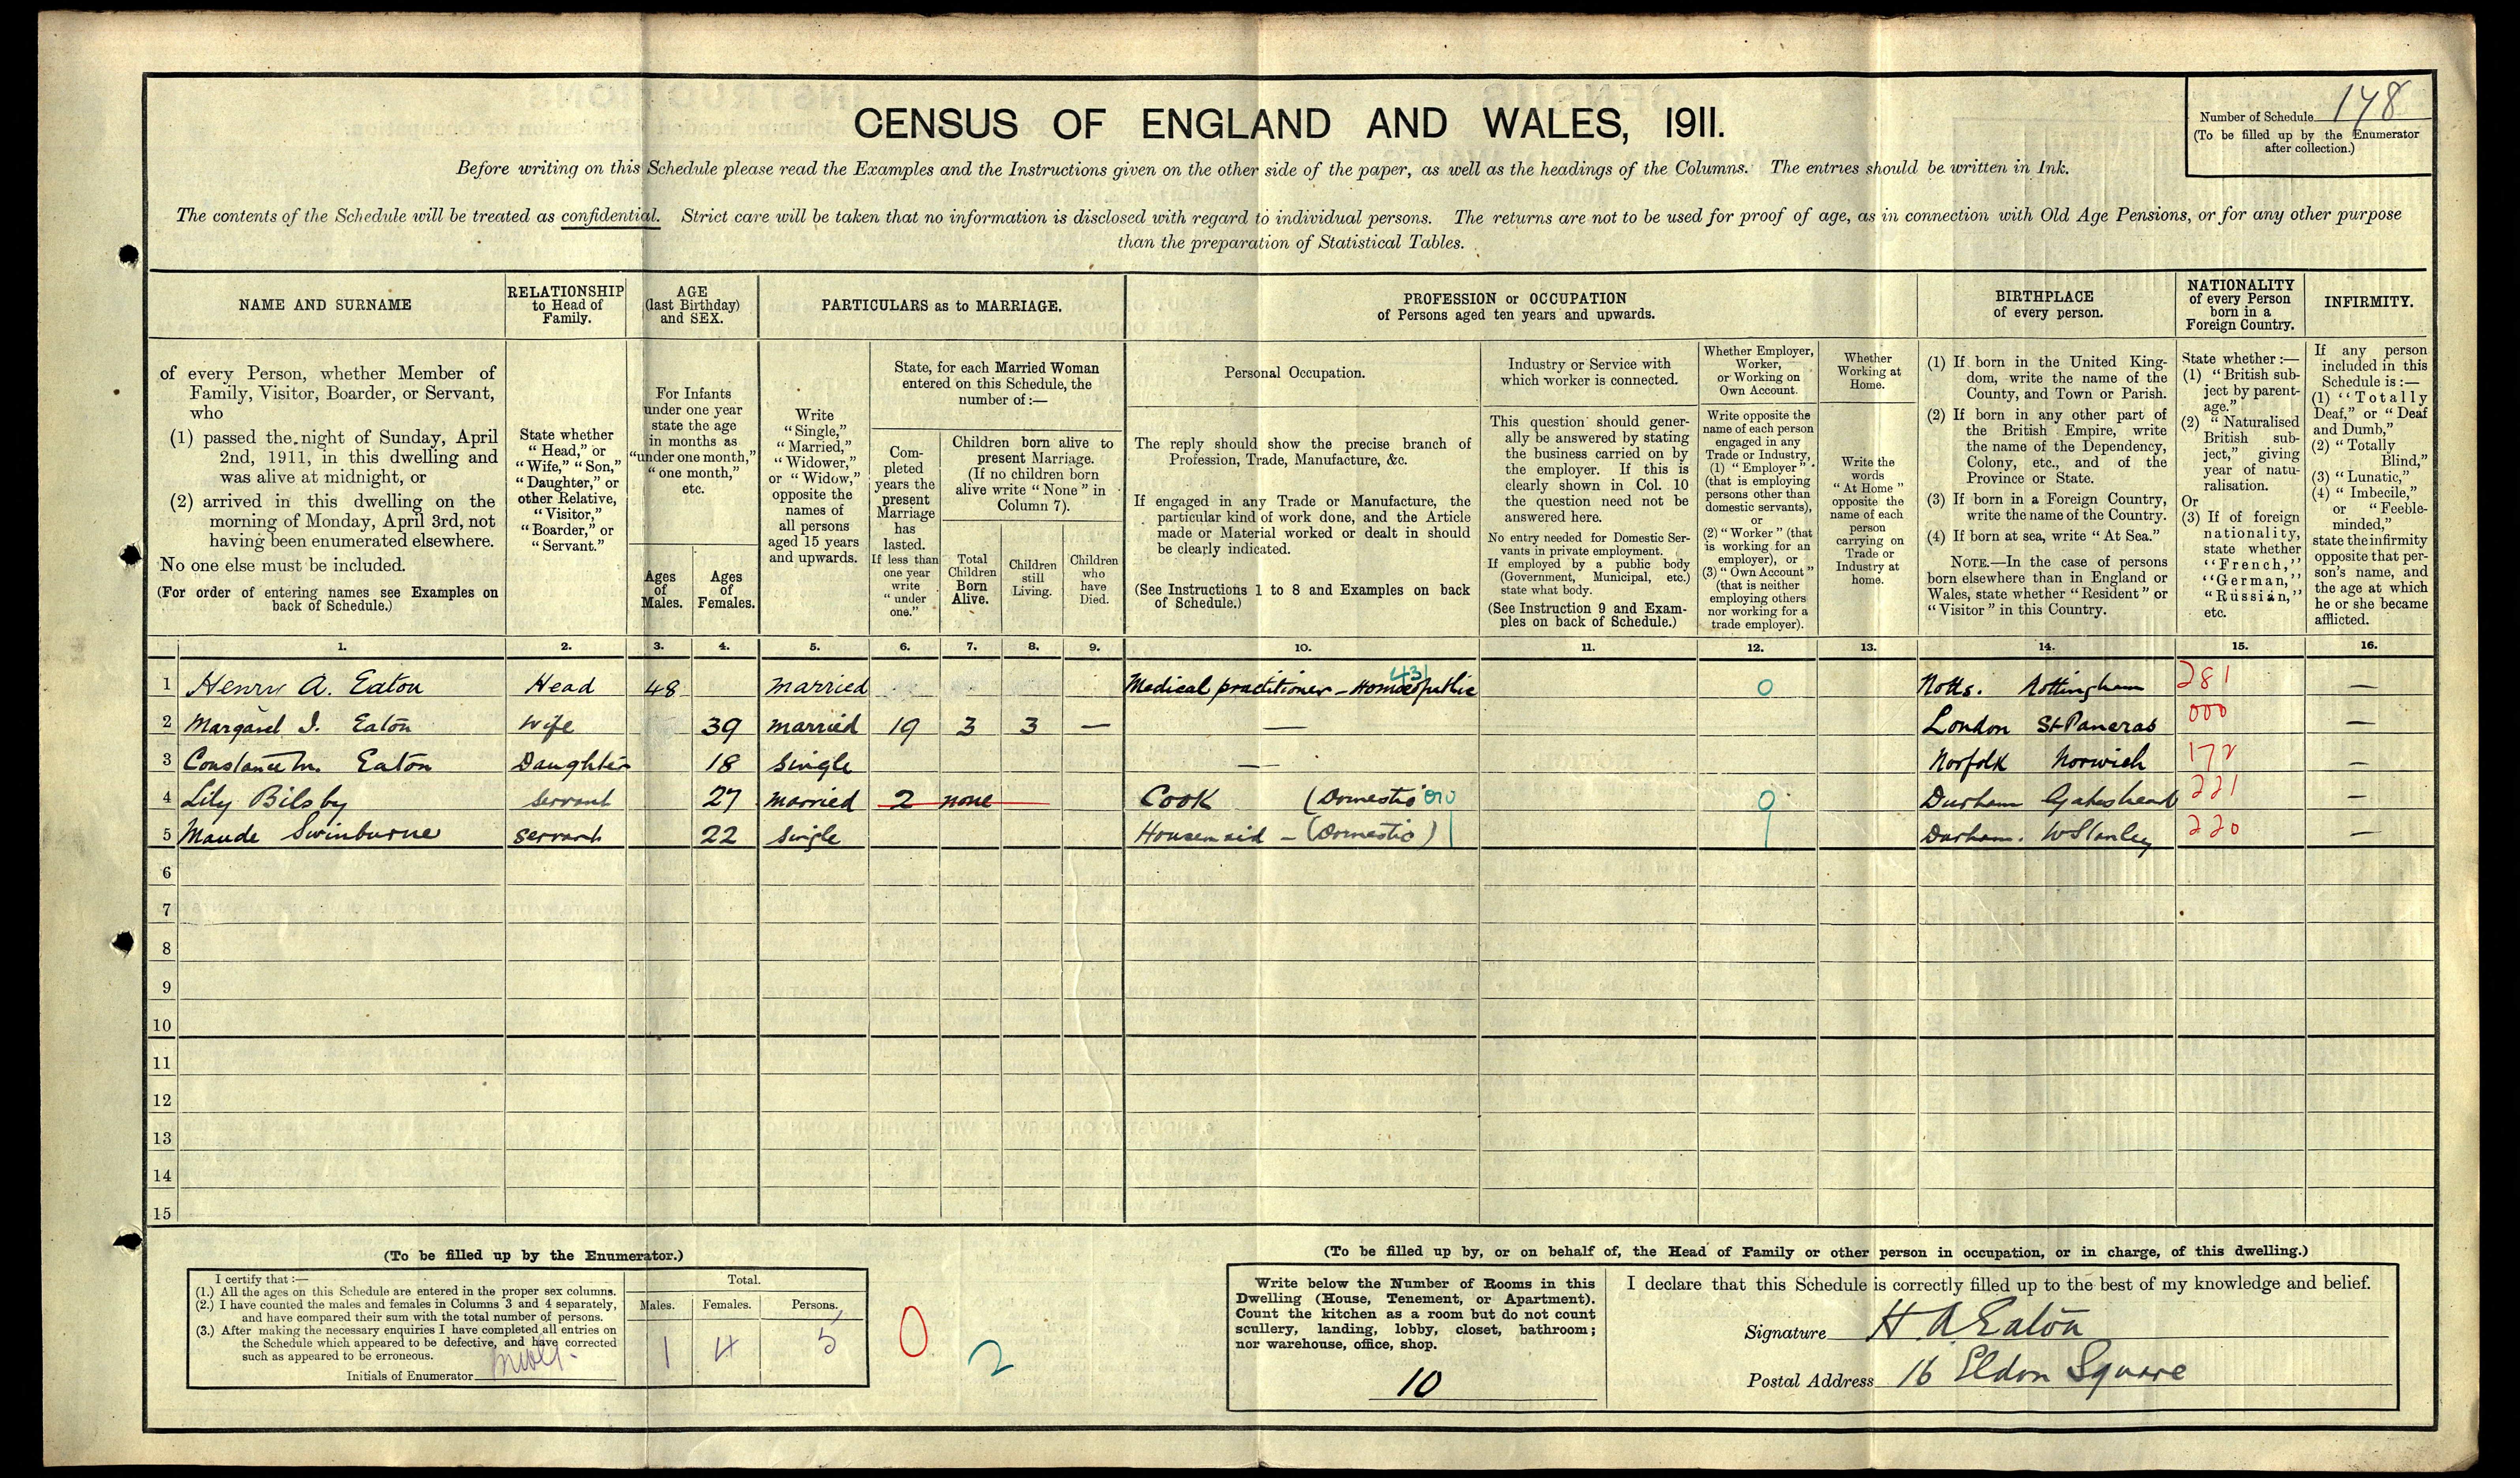 CENSUS OF ENGLAND AND WALES, 1911.
Number of Schedule 178
(To be filled up by the Enumerator
after collection.)
Before writing on this Schedule please read the Examples and the Instructions given on the other side of the paper, as well as the headings of the Columns. The entries should be written in Ink.
The contents of the Schedule will be treated as confidential. Strict care will be taken that no information is disclosed with regard to individual persons. The returns are not to be used for proof of age, as in connection with Old Age Pensions, or for any other purpose
than the preparation of Statistical Tables.
NAME AND SURNAME
of every Person, whether Member of
Family, Visitor, Boarder, or Servant,
who
(1) passed the night of Sunday, April
2nd, 1911, in this dwelling and
was alive at midnight, or
(2) arrived in this dwelling on the
morning of Monday, April 3rd, not
having been enumerated elsewhere.
No one else must be included.
(For order of entering names see Examples on
back of Schedule.)
RELATIONSHIP
to Head of
Family.
State whether
"Head," or
"Wife," "Son,"
"Daughter," or
other Relative,
"Visitor,"
"Boarder," or
"Servant."
AGE
(last Birthday)
and SEX.
For Infants
under one year
state the age
in months as
"under one month,"
"one month,"
etc.
Ages
of
Males.
Ages
of
Females.
PARTICULARS as to MARRIAGE.
Write
"Single,"
"Married,"
"Widower,"
or "Widow,"
opposite the
names of
all persons
aged 15 years
and upwards.
State, for each Married Woman
entered on this Schedule, the
number of:—
Com-
pleted
years the
present
Marriage
has
lasted.
If less than
one year
write
"under
one."
Children born alive to
present Marriage.
(If no children born
alive write "None" in
Column 7).
Total
Children
Born
Alive.
Children
still
Living.
Children
who
have
Died.
PROFESSION or OCCUPATION
of Persons aged ten years and upwards.
Personal Occupation.
The reply should show the precise branch of
Profession, Trade, Manufacture, &c.
If engaged in any Trade or Manufacture, the
particular kind of work done, and the Article
made or Material worked or dealt in should
be clearly indicated.
(See Instructions 1 to 8 and Examples on back
of Schedule.)
Industry or Service with
which worker is connected.
This question should gener-
ally be answered by stating
the business carried on by
the employer. If this is
clearly shown in Col. 10
the question need not be
answered here.
No entry needed for Domestic Ser-
vants in private employment.
If employed by a public body
(Government, Municipal, etc.)
state what body.
(See Instruction 9 and Exam-
ples on back of Schedule.)
Whether Employer,
Worker,
or Working on
Own Account.
Write opposite the
name of each person
engaged in any
Trade or Industry,
(1) "Employer"
(that is employing
persons other than
domestic servants),
or
(2) "Worker" (that
is working for an
employer), or
(3) "Own Account"
(that is neither
employing others
nor working for a
trade employer).
Whether
Working at
Home.
Write the
words
"At Home"
opposite the
name of each
person
carrying on
Trade or
Industry at
home.
BIRTHPLACE
of every person.
(1) If born in the United King-
dom, write the name of the
County, and Town or Parish.
(2) If born in any other part of
the British Empire, write
the name of the Dependency,
Colony, etc., and of the
Province or State.
(3) If born in a Foreign Country,
write the name of the Country.
(4) If born at sea, write "At Sea."
NOTE.—In the case of persons
born elsewhere than in England or
Wales, state whether "Resident" or
"Visitor" in this Country.
NATIONALITY
of every Person
born in a
Foreign Country.
State whether:—
(1) "British sub-
ject by parent-
age."
(2) "Naturalised
British sub-
ject," giving
year of natu-
ralisation.
Or
(3) If of foreign
nationality,
state whether
"French,"
"German,"
"Russian,"
etc.
INFIRMITY.
If any person
included in this
Schedule is:—
(1) "Totally
Deaf," or "Deaf
and Dumb,"
(2) "Totally
Blind,"
(3) "Lunatic,"
(4) "Imbecile,"
or "Feeble-
minded,"
state the infirmity
opposite that per-
son's name, and
the age at which
he or she became
afflicted.
1. 2. 3. 4. 5. 6. 7. 8. 9. 10. 11. 12. 13. 14. 15. 16.
431
1 Henry A. Eaton Head 48 Married Medical practitioner - Homœopathic 0 Notts. Nottingham 281 —
2 Margaret I. Eaton Wife 39 Married 19 3 3 — — London St Pancras 000 —
3 Constance M. Eaton Daughter 18 Single — Norfolk Norwich 172 —
4 Lily Bilsby Servant 27 Married 2 none Cook (Domestic 010 0 Durham Gateshead 221 —
5 Maude Swinburne Servant 22 Single Housemaid - (Domestic) Durham. W Stanley 220 —
6
7
8
9
10
11
12
13
14
15
(To be filled up by the Enumerator.)
I certify that:—
(1.) All the ages on this Schedule are entered in the proper sex columns.
(2.) I have counted the males and females in Columns 3 and 4 separately,
and have compared their sum with the total number of persons.
(3.) After making the necessary enquiries I have completed all entries on
the Schedule which appeared to be defective, and have corrected
such as appeared to be erroneous.
Initials of Enumerator
Total.
Males. Females. Persons.
1 4 5
0 2
(To be filled up by, or on behalf of, the Head of Family or other person in occupation, or in charge, of this dwelling.)
Write below the Number of Rooms in this
Dwelling (House, Tenement, or Apartment).
Count the kitchen as a room but do not count
scullery, landing, lobby, closet, bathroom;
nor warehouse, office, shop.
10
I declare that this Schedule is correctly filled up to the best of my knowledge and belief.
Signature H A Eaton
Postal Address 16 Eldon Square